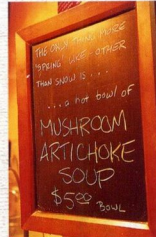 THE ONLY THING MORE
'SPRING' LIKE OTHER
THAN SNOW IS ...
... a hot bowl of
MUSHROOM
ARTICHOKE
SOUP
$5.00 BOWL